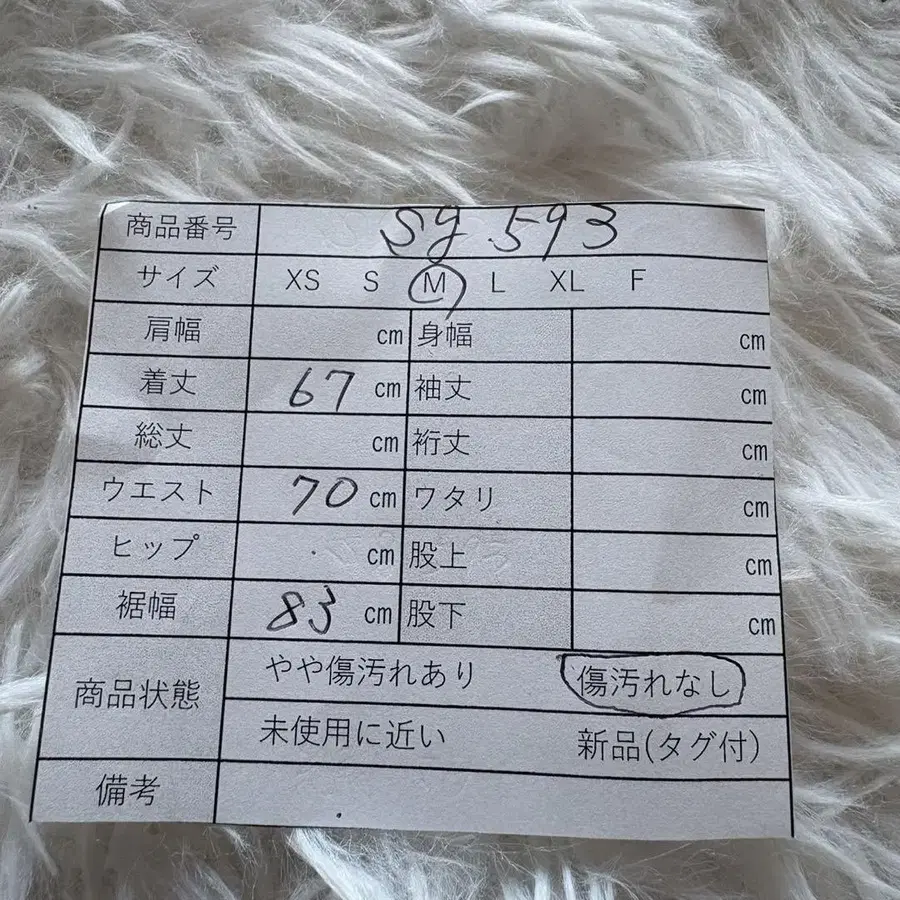 商品番号 Sg 593
サイズ XS S M L XL F
肩幅 cm 身幅 cm
着丈 67 cm 袖丈 cm
総丈 cm 裄丈 cm
ウエスト 70 cm ワタリ cm
ヒップ cm 股上 cm
裾幅 83 cm 股下 cm
商品状態 やや傷汚れあり 傷汚れなし
未使用に近い 新品(タグ付)
備考